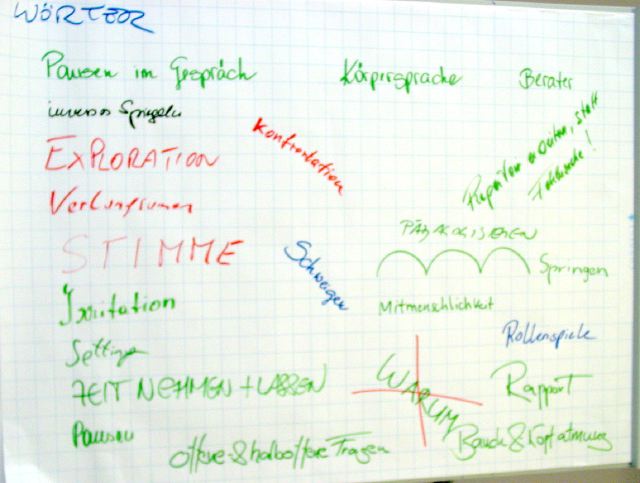 WÖRTER
Pausen im Gespräch
Körpersprache
Berater
inneres Spiegeln
Konfrontation
EXPLORATION
statt
Fehlersuche!
STIMME
Schweigen
PÄDAGOGISIEREN
Springen
Irritation
Mitmenschlichkeit
Rollenspiele
Setting
ZEIT NEHMEN + LASSEN
WARUM
Rapport
Pausen
offene & halboffene Fragen
Bauch & Kopfatmung